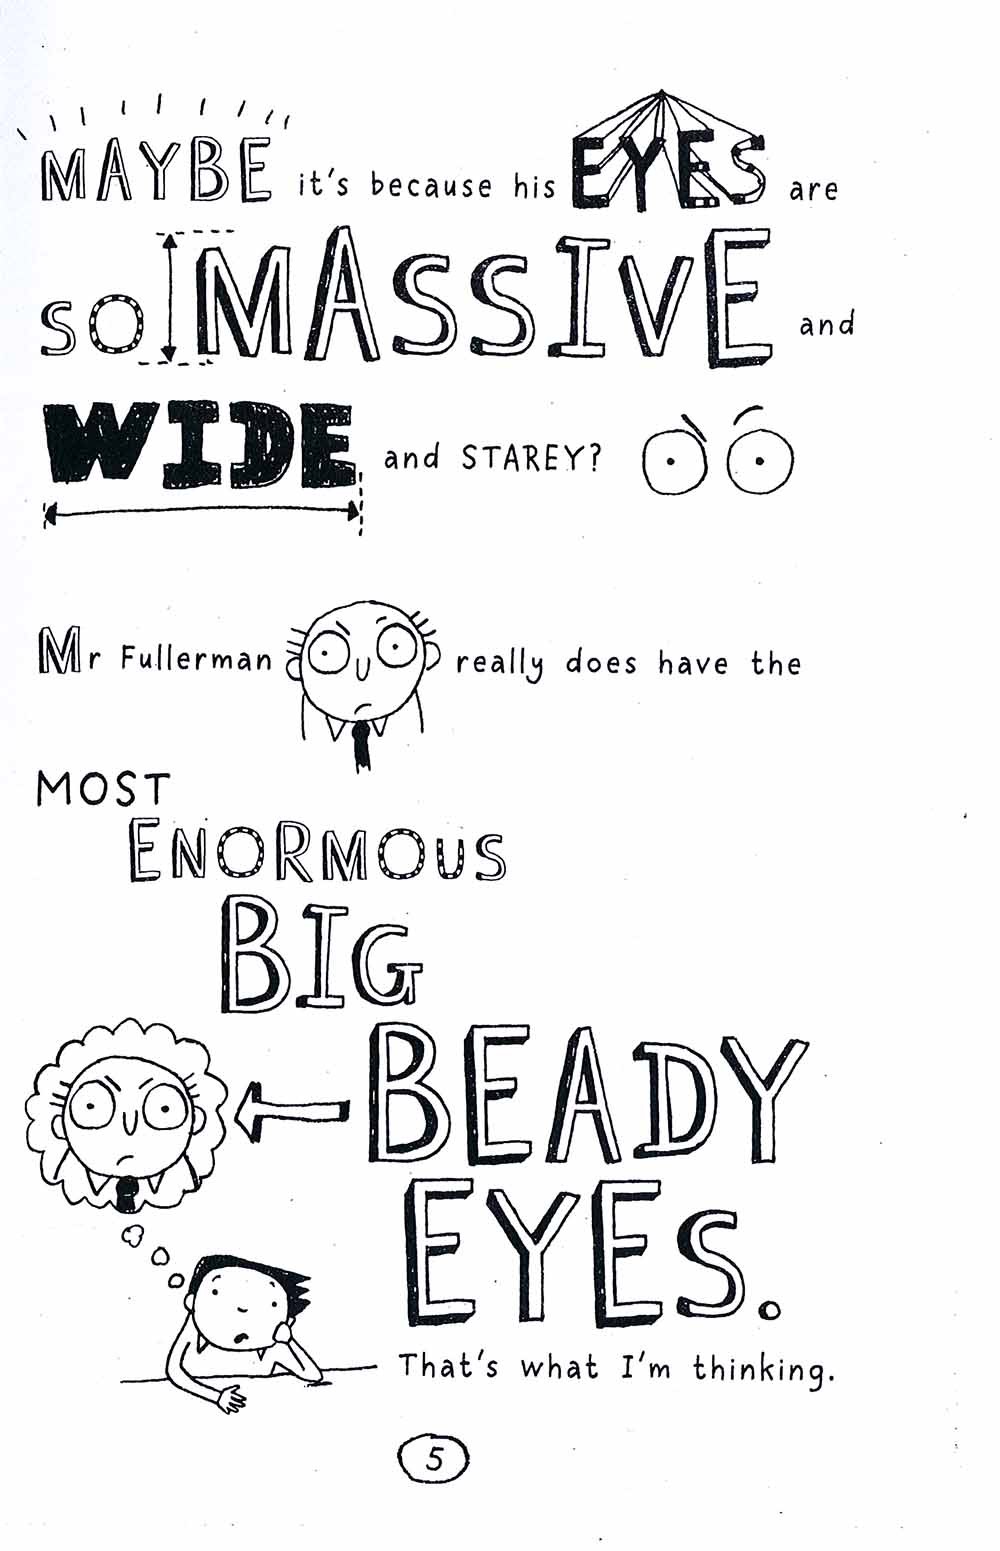 MAYBE it's because his EYES are
so MASSIVE and
WIDE and STAREY?
Mr Fullerman really does have the
MOST
ENORMOUS
BIG
BEADY
EYES.
That's what I'm thinking.
5